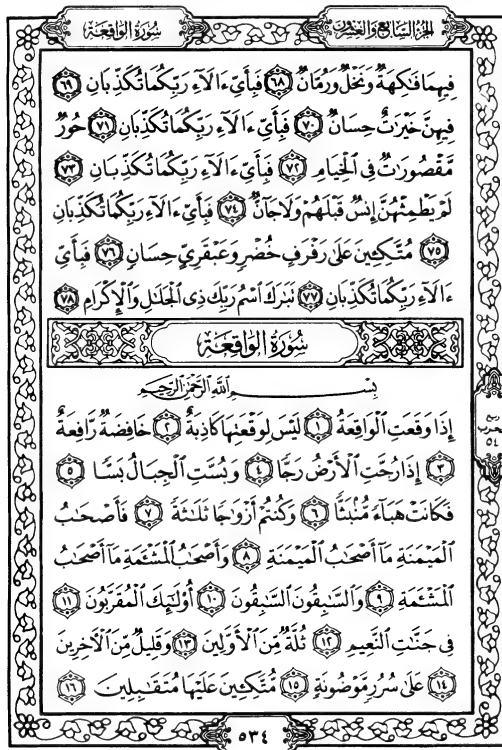 سُورَةُ الوَاقِعَةِ
الجُزْءُ السَّابِعُ وَالعِشْرُونَ
فِيهِمَا فَٰكِهَةٌ وَنَخْلٌ وَرُمَّانٌ ٦٨ فَبِأَيِّ ءَالَآءِ رَبِّكُمَا تُكَذِّبَانِ ٦٩
فِيهِنَّ خَيْرَٰتٌ حِسَانٌ ٧٠ فَبِأَيِّ ءَالَآءِ رَبِّكُمَا تُكَذِّبَانِ ٧١ حُورٌ
مَّقْصُورَٰتٌ فِى ٱلْخِيَامِ ٧٢ فَبِأَيِّ ءَالَآءِ رَبِّكُمَا تُكَذِّبَانِ ٧٣
لَمْ يَطْمِثْهُنَّ إِنسٌ قَبْلَهُمْ وَلَا جَآنٌّ ٧٤ فَبِأَيِّ ءَالَآءِ رَبِّكُمَا تُكَذِّبَانِ
٧٥ مُتَّكِـِٔينَ عَلَىٰ رَفْرَفٍ خُضْرٍ وَعَبْقَرِىٍّ حِسَانٍ ٧٦ فَبِأَيِّ
ءَالَآءِ رَبِّكُمَا تُكَذِّبَانِ ٧٧ تَبَٰرَكَ ٱسْمُ رَبِّكَ ذِى ٱلْجَلَٰلِ وَٱلْإِكْرَامِ ٧٨
سُورَةُ الوَاقِعَةِ
بِسْمِ ٱللَّهِ ٱلرَّحْمَٰنِ ٱلرَّحِيمِ
إِذَا وَقَعَتِ ٱلْوَاقِعَةُ ١ لَيْسَ لِوَقْعَتِهَا كَاذِبَةٌ ٢ خَافِضَةٌ رَّافِعَةٌ
٣ إِذَا رُجَّتِ ٱلْأَرْضُ رَجًّا ٤ وَبُسَّتِ ٱلْجِبَالُ بَسًّا ٥
فَكَانَتْ هَبَآءً مُّنۢبَثًّا ٦ وَكُنتُمْ أَزْوَٰجًا ثَلَٰثَةً ٧ فَأَصْحَٰبُ
ٱلْمَيْمَنَةِ مَآ أَصْحَٰبُ ٱلْمَيْمَنَةِ ٨ وَأَصْحَٰبُ ٱلْمَشْـَٔمَةِ مَآ أَصْحَٰبُ
ٱلْمَشْـَٔمَةِ ٩ وَٱلسَّٰبِقُونَ ٱلسَّٰبِقُونَ ١٠ أُو۟لَٰٓئِكَ ٱلْمُقَرَّبُونَ ١١
فِى جَنَّٰتِ ٱلنَّعِيمِ ١٢ ثُلَّةٌ مِّنَ ٱلْأَوَّلِينَ ١٣ وَقَلِيلٌ مِّنَ ٱلْءَاخِرِينَ
١٤ عَلَىٰ سُرُرٍ مَّوْضُونَةٍ ١٥ مُّتَّكِـِٔينَ عَلَيْهَا مُتَقَٰبِلِينَ ١٦
٥٣٤